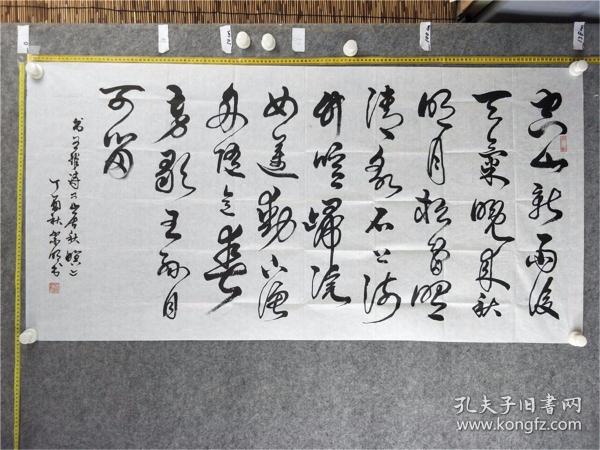 空山新雨後
天氣晚來秋
明月松間照
清泉石上流
竹喧歸浣
女蓮動下漁
舟隨意春
芳歇王孫自
可留
书王維詩《山居秋暝》
丁酉秋
孔夫子旧书网
www.kongfz.com